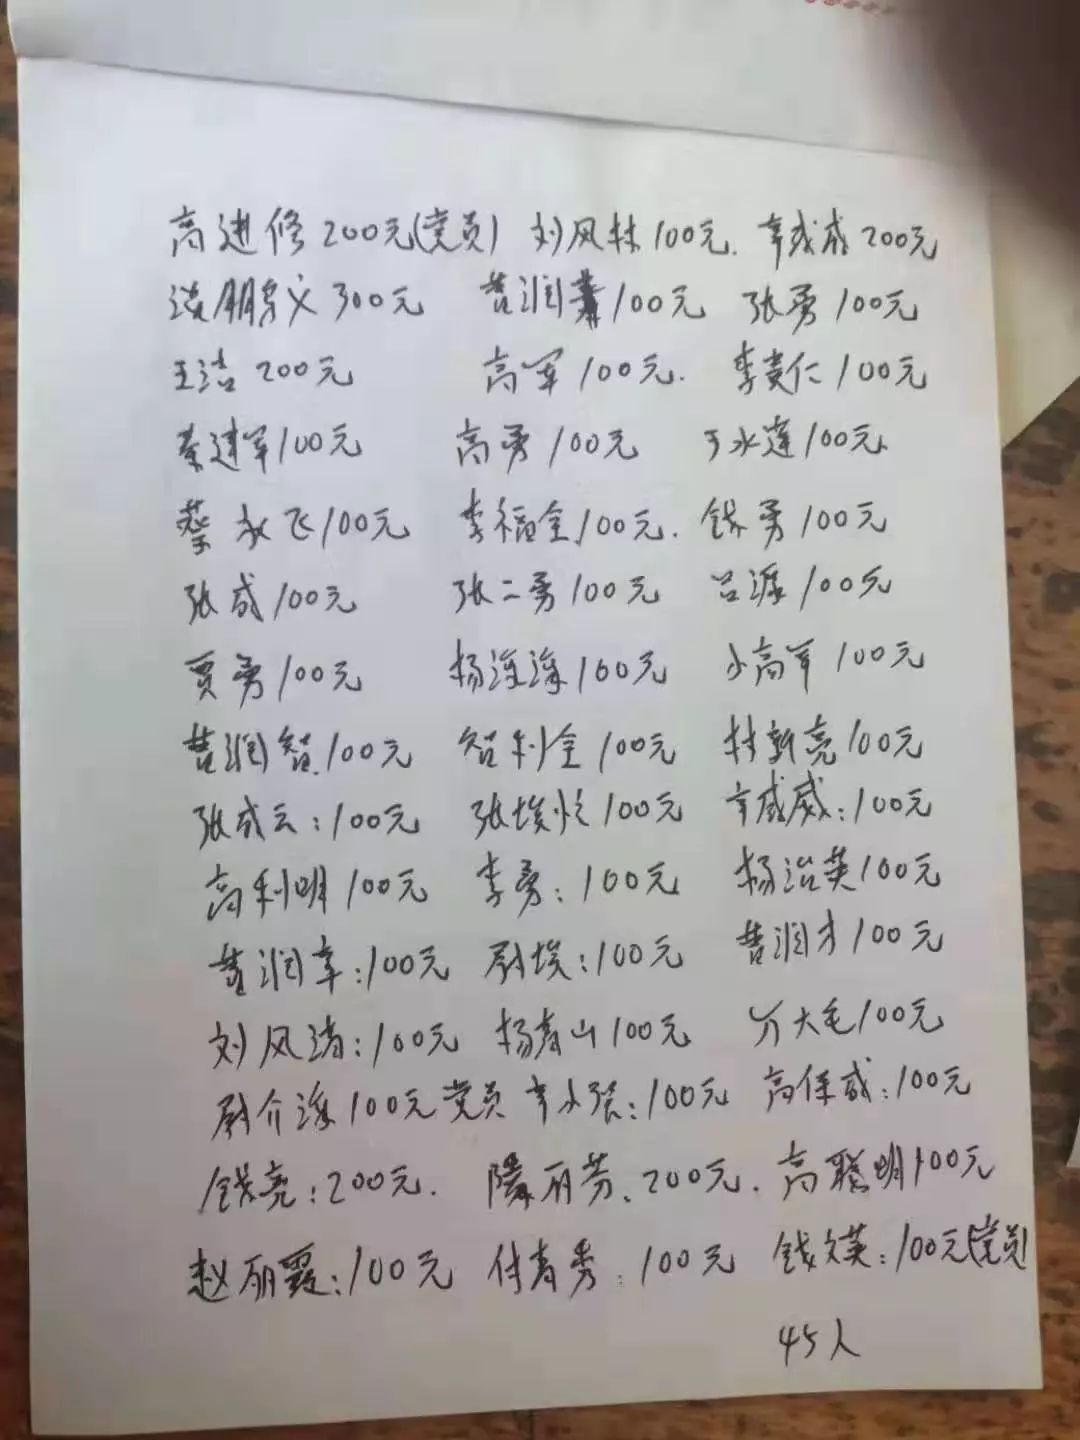 高进修 200元(党员) 刘风林 100元. 辛成成 200元
鹏义 300元 曹润 100元 张勇 100元
王洁 200元 高军 100元. 李贵仁 100元
秦建军 100元 高勇 100元 于水莲 100元
蔡永飞 100元 李福全 100元. 钱勇 100元
张成 100元 张二勇 100元 吕源 100元
贾勇 100元 杨 100元 小高军 100元
曹润智 100元 智利全 100元 林新亮 100元
张成云:100元 张埃 100元 辛威:100元
高利明 100元 李勇:100元 杨治英 100元
曹润:100元 尉埃:100元 曹润才 100元
刘风清:100元 杨春山 100元 大毛 100元
尉介 100元党员 辛小强:100元 高保成:100元
钱亮:200元. 丽芳. 200元. 高聪明 100元
赵丽霞:100元 付春秀:100元 钱文英:100元(党员)
45人